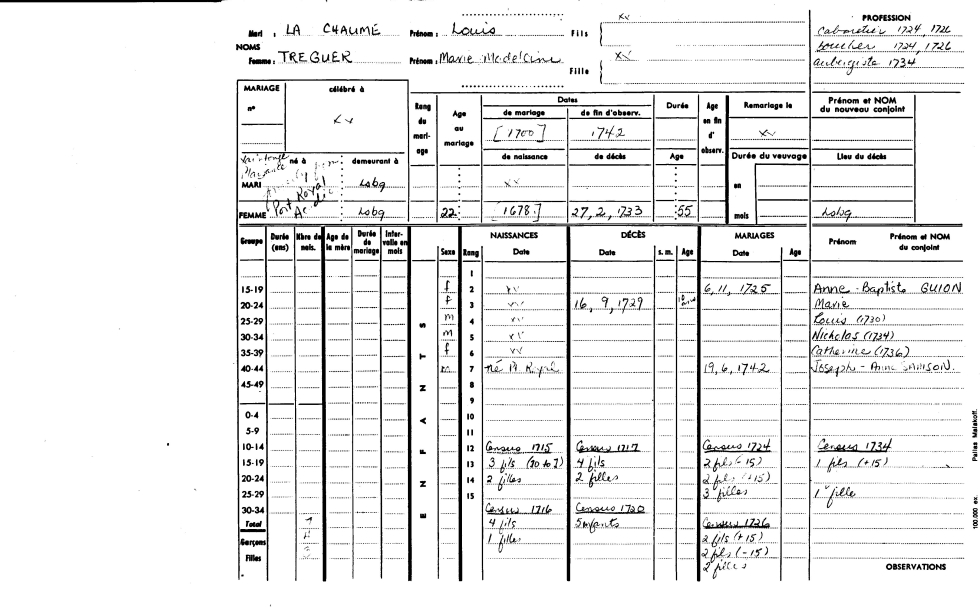 Mari : LA CHAUME Prénom : Louis Fils xx
NOMS
Femme : TREGUER Prénom : Marie Madeleine Fille xx
PROFESSION
cabaretier 1724, 1726
boucher 1724, 1726
aubergiste 1734
MARIAGE
n°
célébré à
xx
Rang du mariage
Age au mariage
Dates
de mariage de fin d'observ.
[1700] 1742
de naissance de décès
Durée
Age
Age en fin d' observ.
Remariage le
xx
Durée du veuvage
en
mois
Prénom et NOM du nouveau conjoint
Lieu du décès
né à demeurant à
MARI Lsbg xx
Port Royal
Acadie
FEMME Lsbg 22 [1678] 27, 2, 1733 55 Lsbg
Groupe Durée (ans) Nbre de nais. Age de la mère Durée de mariage Intervalle en mois
ENFANTS
Sexe Rang
NAISSANCES Date
DÉCÈS Date s. m. Age
MARIAGES Date Age
Prénom Prénom et NOM du conjoint
1
15-19 f 2 xx 6, 11, 1725 Anne-Baptiste GUION
20-24 f 3 xx 16, 9, 1729 Marie
25-29 m 4 xx Louis (1730)
30-34 m 5 xx Nicholas (1734)
35-39 f 6 xx Catherine (1736)
40-44 m 7 né 19, 6, 1742 Joseph - Anne SAMSON
45-49 8
9
0-4 10
5-9 11
10-14 12 Census 1715 Census 1717 Census 1724 Census 1734
15-19 13 3 fils (10 to 1) 4 fils 2 fils (-15) 1 fils (+15)
20-24 14 2 filles 2 filles 2 fils (+15)
25-29 15 3 filles 1 fille
30-34 Census 1716 Census 1720
Total 7 4 fils 5 enfants Census 1726
Garçons 1 filles 2 fils (+15)
Filles 2 fils (-15)
2 filles
OBSERVATIONS
100.000 ex. Pallas Malakoff.